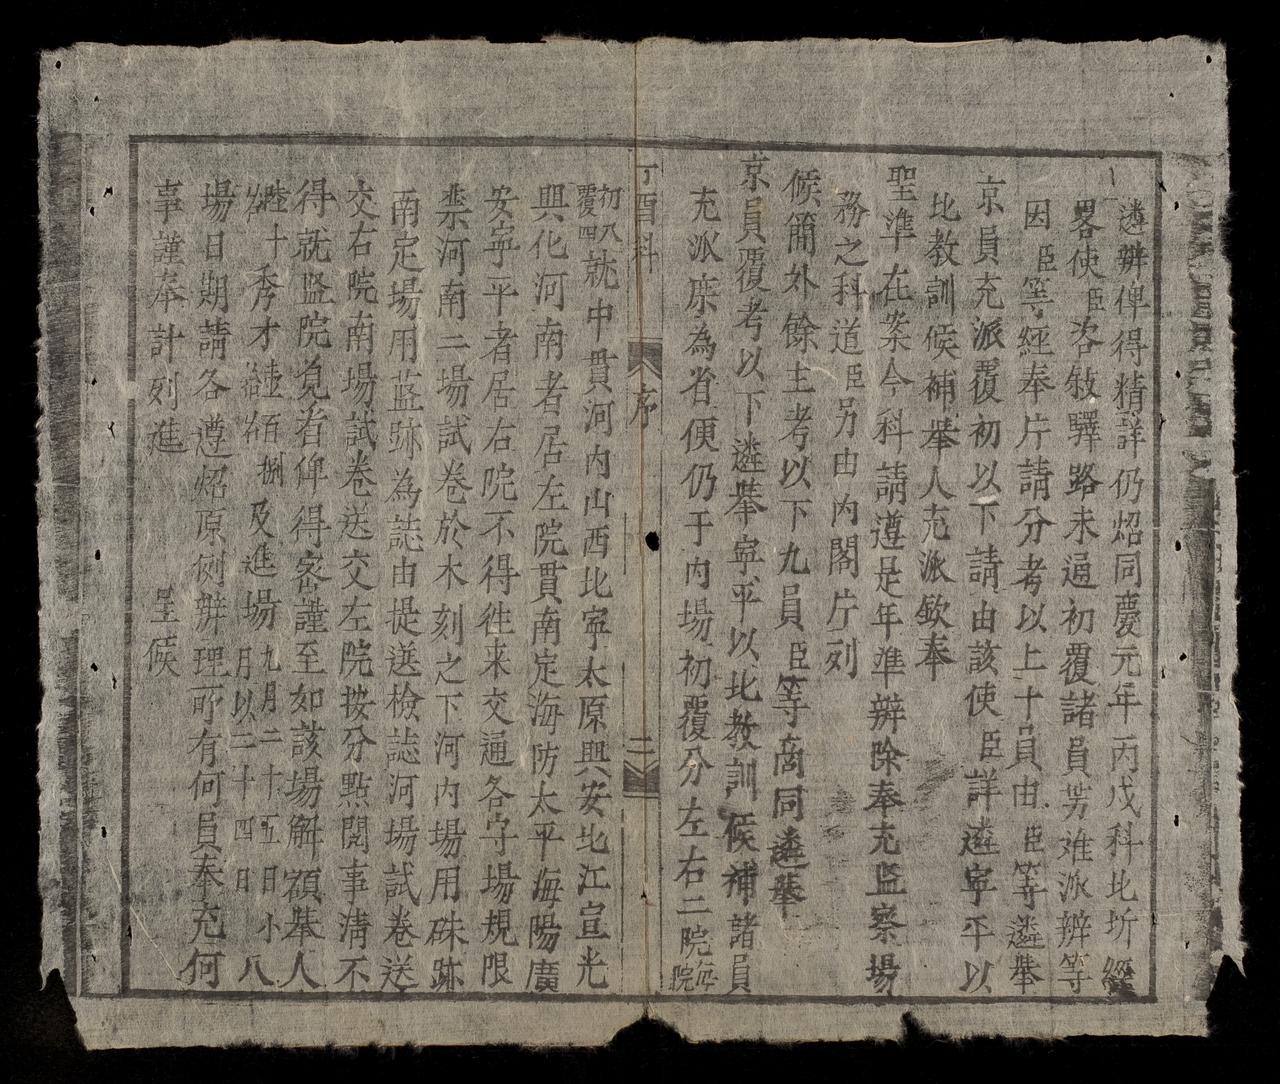 遴辦俾得精詳仍炤同慶元年丙戌科北圻經
畧使臣咨敘驛路未通初覆諸員势难派辨等
因臣等経奉片請分考以上十員由臣等遴举
京員充派覆初以下請由該使臣詳遴寧平以
北教訓候補举人充派欽奉
聖準在案今科請遵是年準辦除奉充监察場
務之科道臣另由内閣片列
候簡外餘主考以下九員臣等商同遴举
京員覆考以下遴举寧平以北教訓候補諸員
充派庶為省便仍于内場初覆分左右二院每院
丁酉科 序 二
初八覆四就中貫河内山西北寧太原興安北江宣光
興化河南者居左院貫南定海防太平海陽廣
安寧平者居右院不得徃来交通各守場規限
禁河南二場試卷於木刻之下河内場用硃跡
南定場用藍跡為誌由提送檢誌河場試卷送
交右院南場試卷送交左院按分點閱事清不
得就监院覓看俾得密謹至如該場解額举人
陸十秀才壹佰捌拾及進場九月二十五日小月以二十四日八
場日期請各遵炤原例辦理所有何員奉充何
事謹奉計列進 呈候